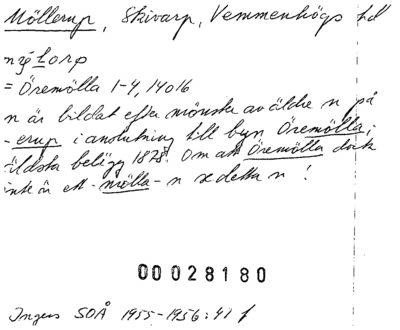 Möllerup, Skivarp, Vemmenhögs hd
nyétorp
= Öremölla 1-4, 14, 016
n är bildat efter mönster av äldre n på
-erup i anslutning till byn Öremölla;
äldsta belägg 1878. Om att Öremölla dock
inte är ett -mölla-n se detta n!
00028180
Ingers SOÅ 1955-1956:41 f